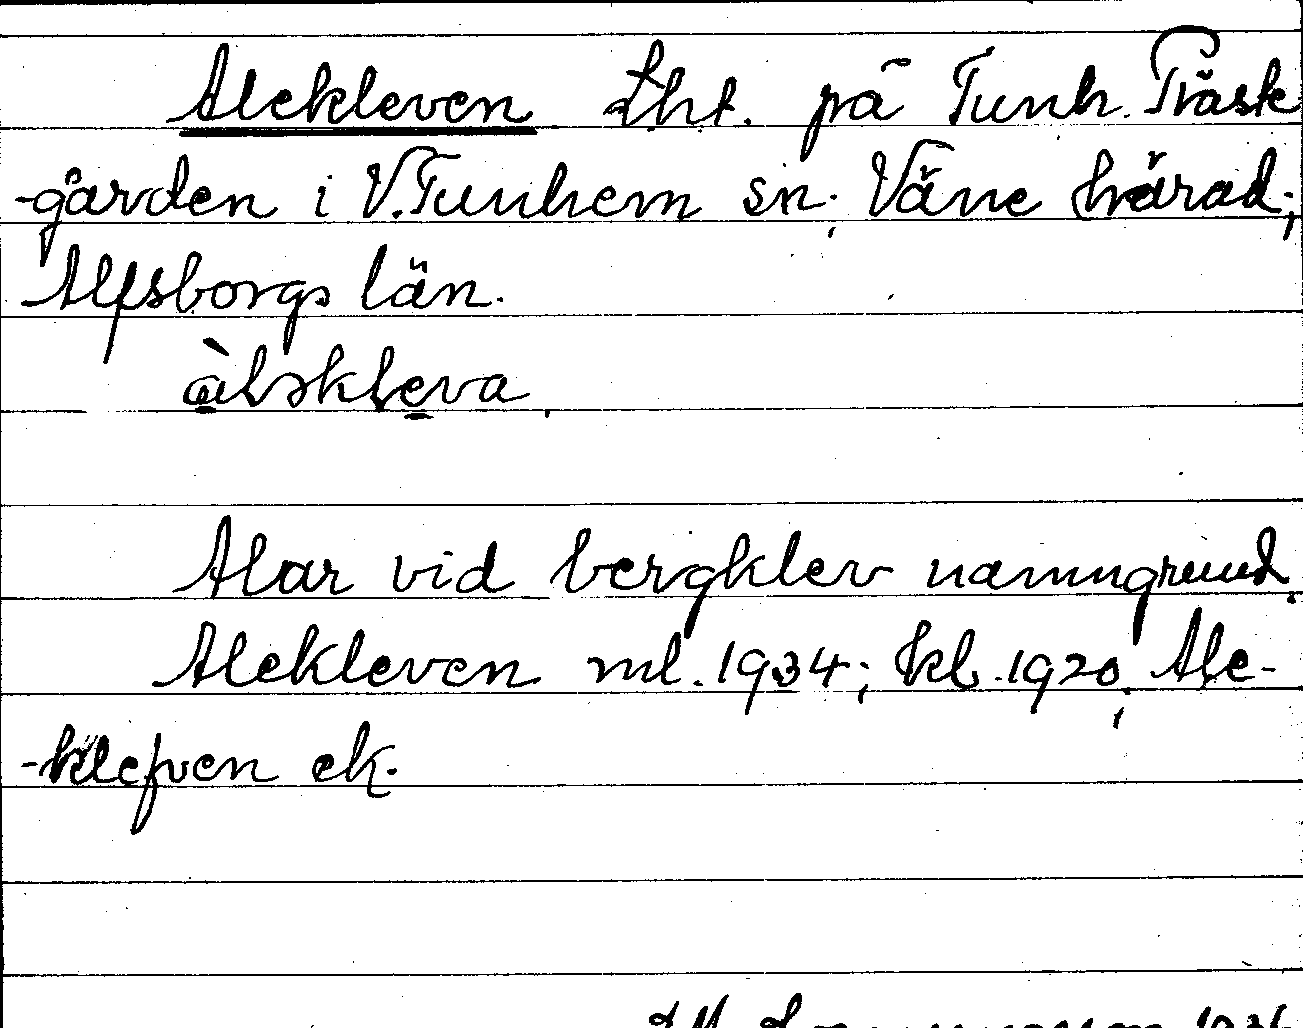 Alekleven Lht. på Tunh. Präst
-gården i V. Tunhem sn; Väne härad;
Alfsborgs län.
àlskleva
Alar vid bergklev namngrund.
Alekleven ml. 1934; kl. 1920; Ale-
-klefven ek.